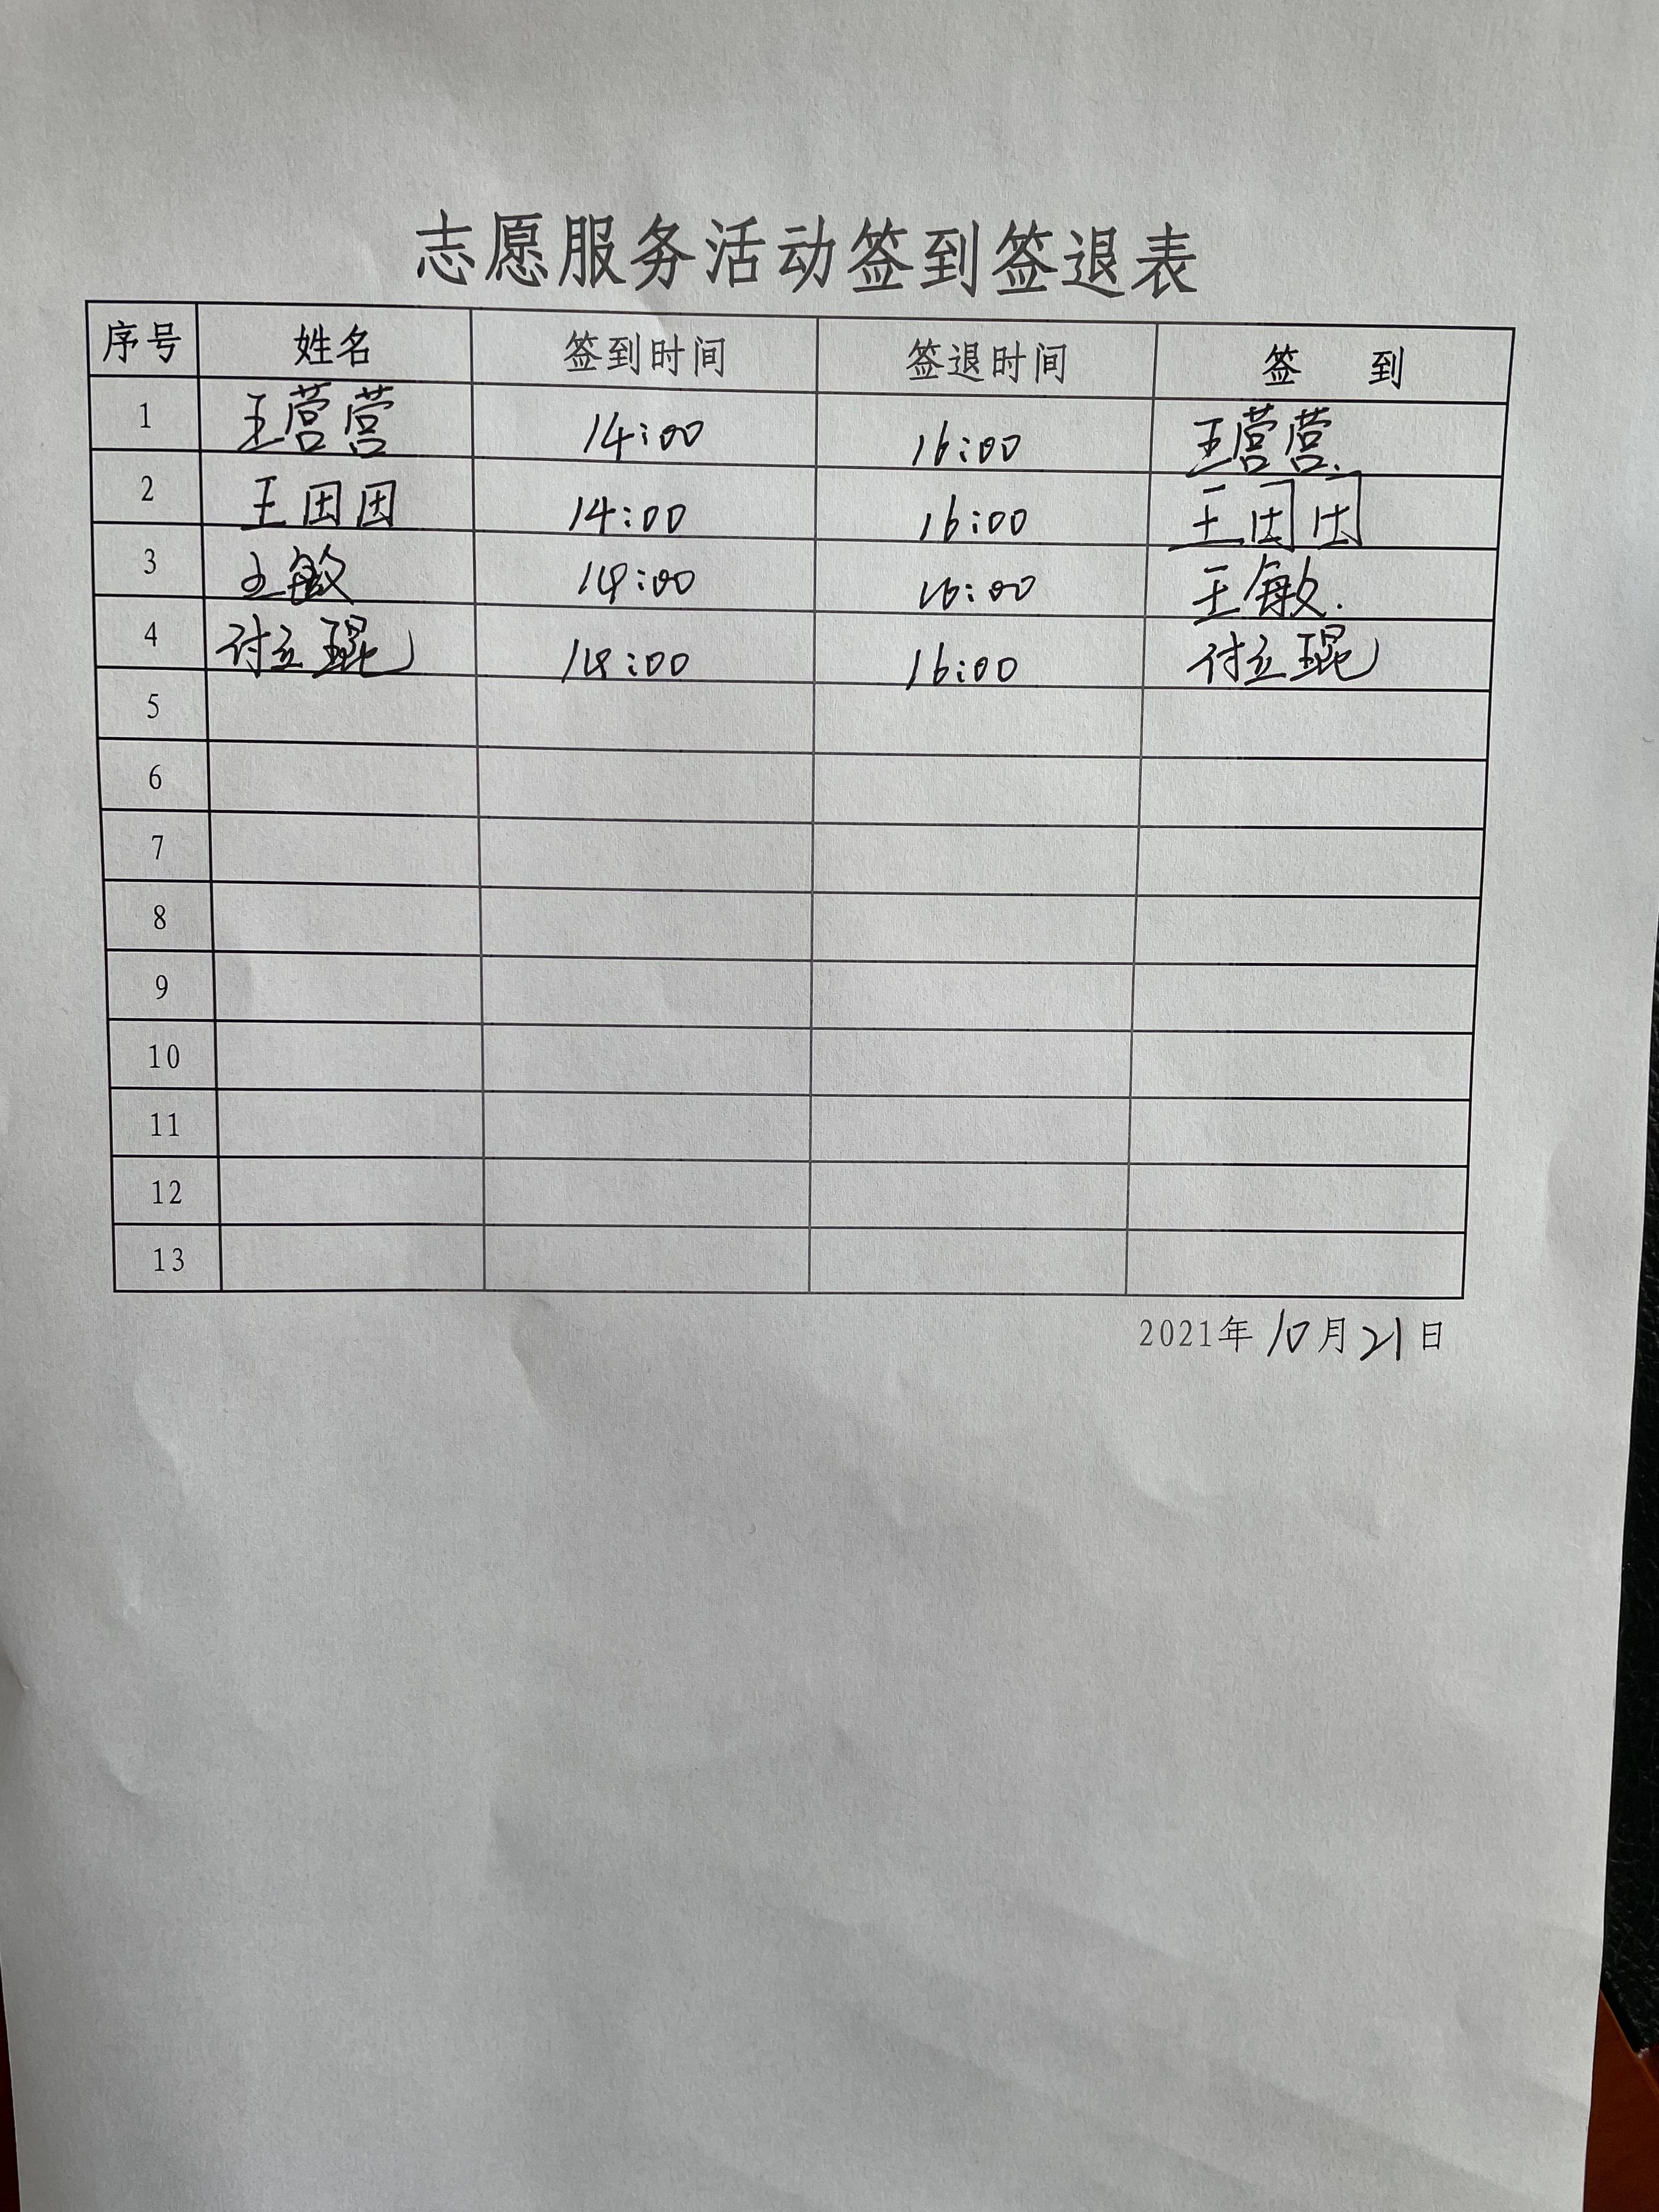 志愿服务活动签到签退表
序号 姓名 签到时间 签退时间 签 到
1 王营营 14:00 16:00 王营营.
2 王团团 14:00 16:00 王团团
3 王敏 14:00 16:00 王敏.
4 付立琨 14:00 16:00 付立琨
5
6
7
8
9
10
11
12
13
2021年10月21日